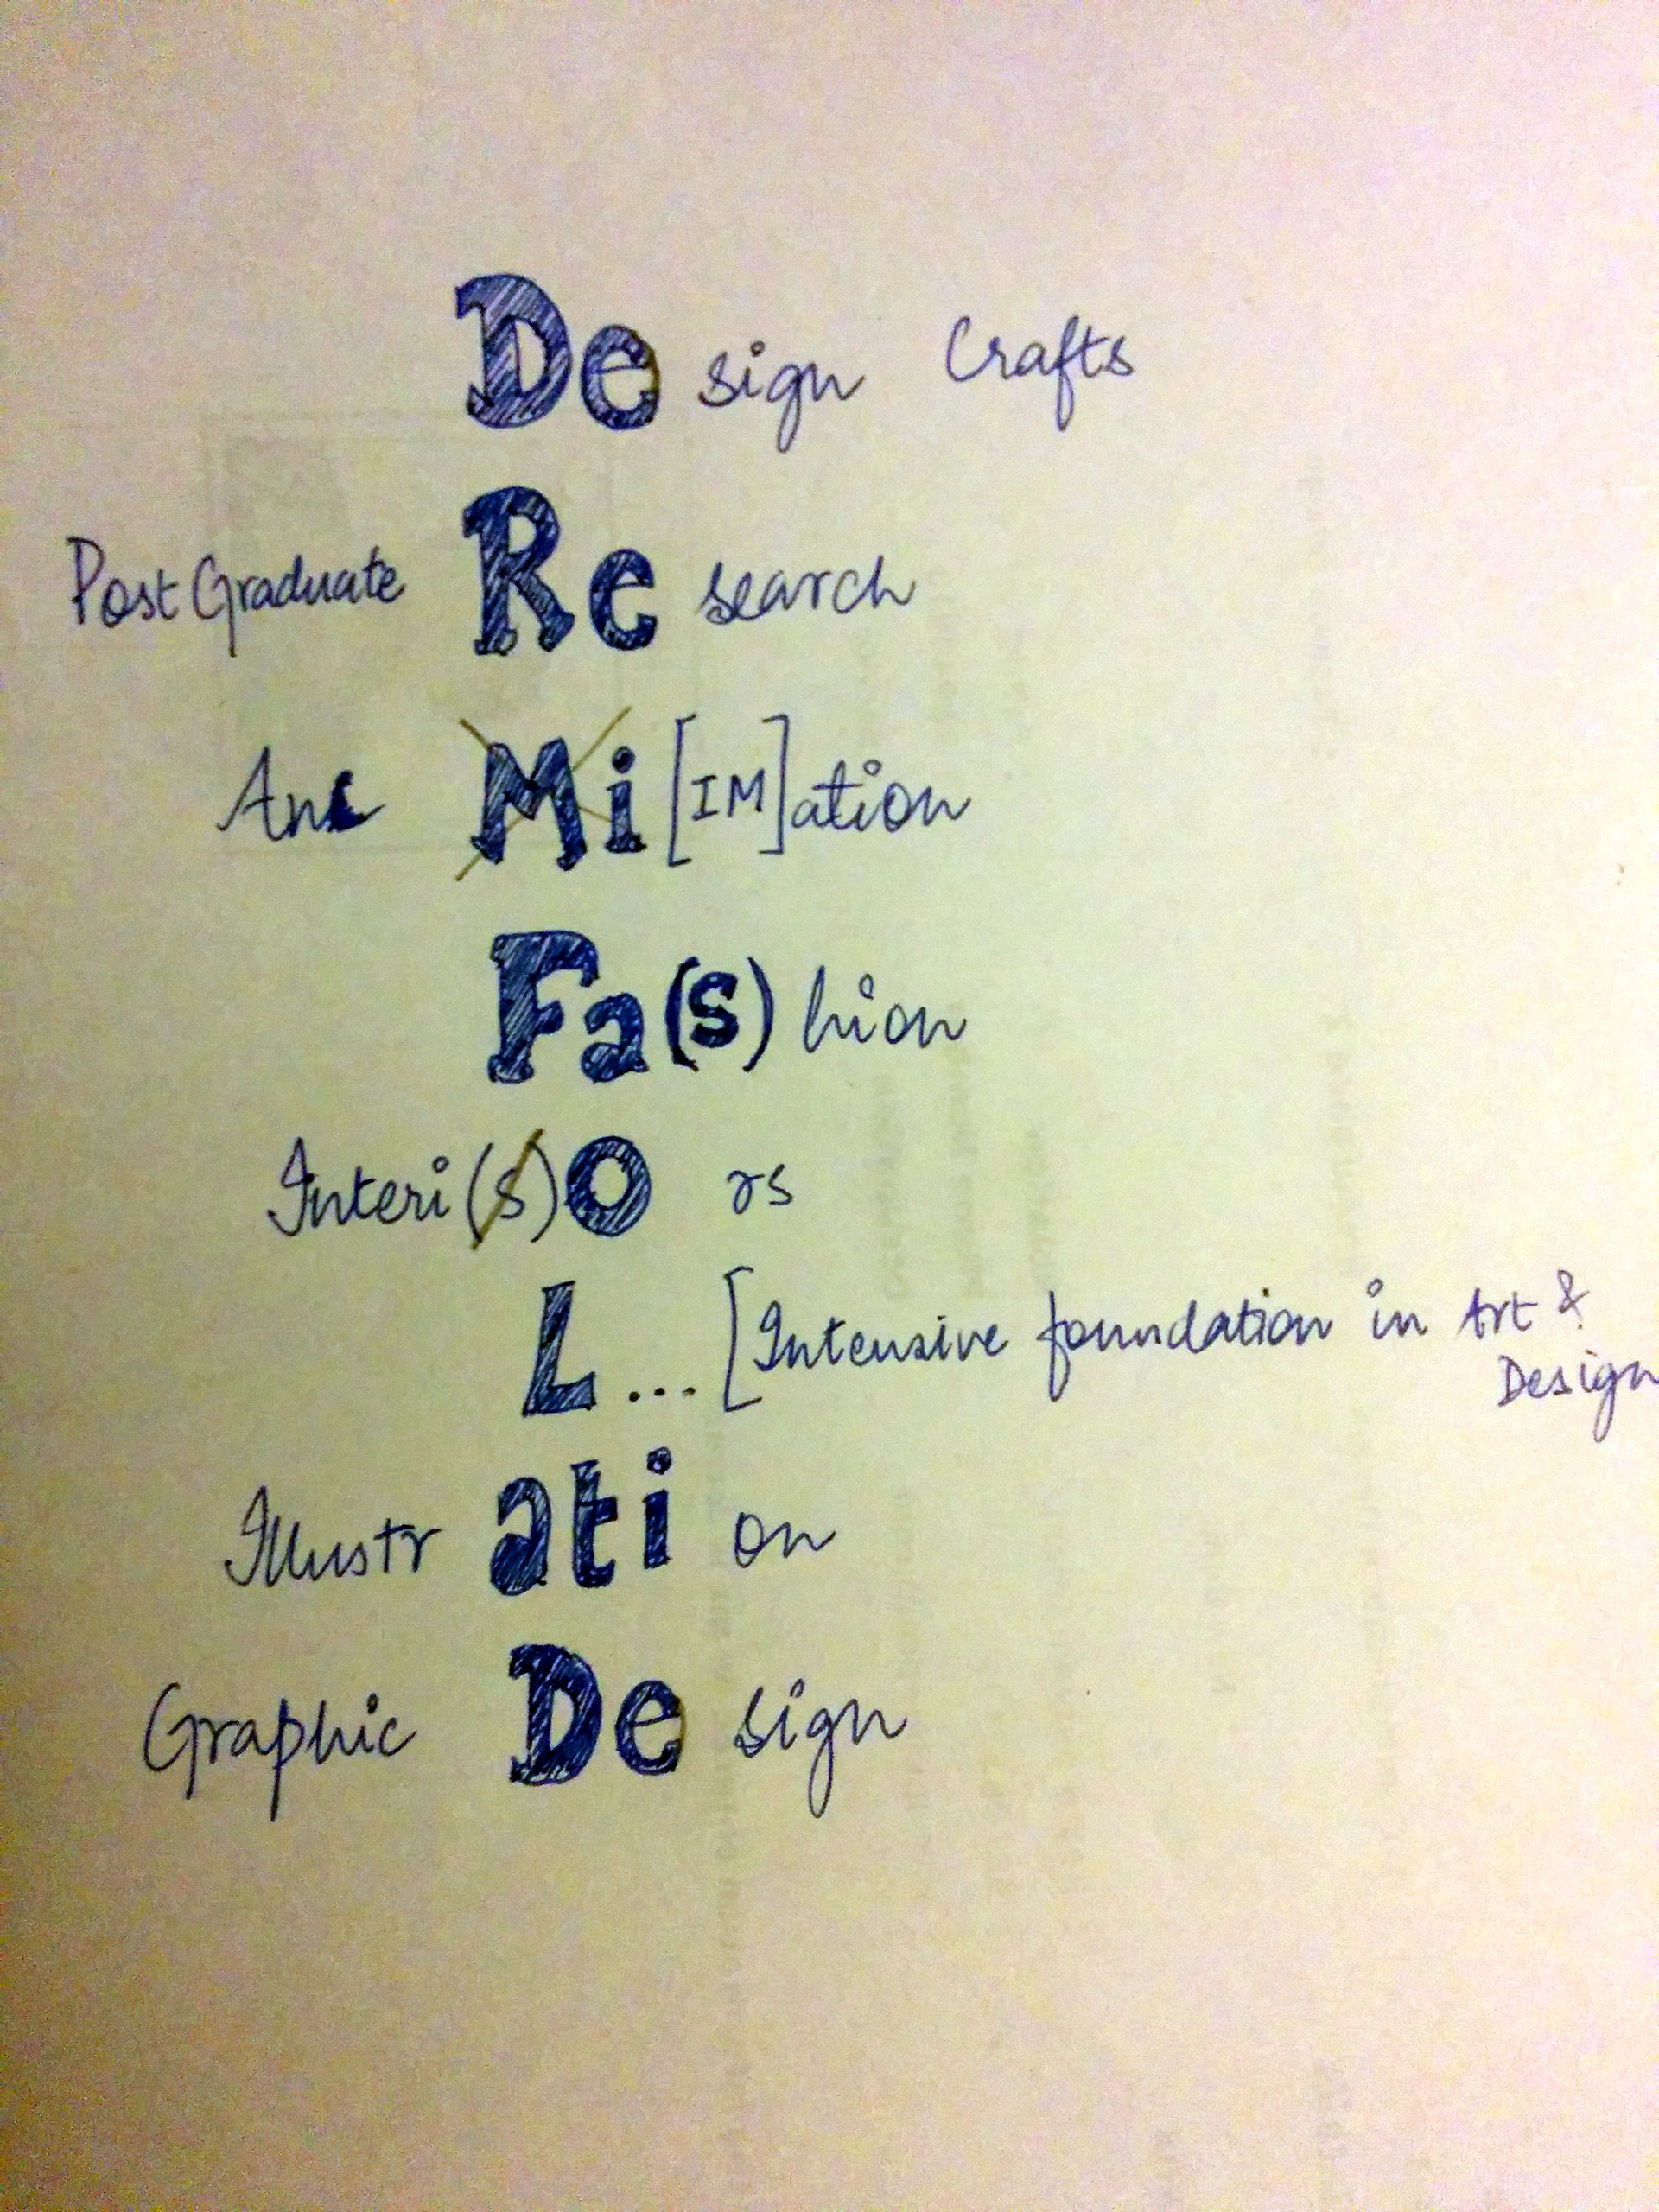 Design Crafts
Post Graduate Research
Ani Mi [IM]ation
Fa(s)hion
Interi(s)Ors
L... [Intensive foundation in Art &
Design
Illustration
Graphic Design